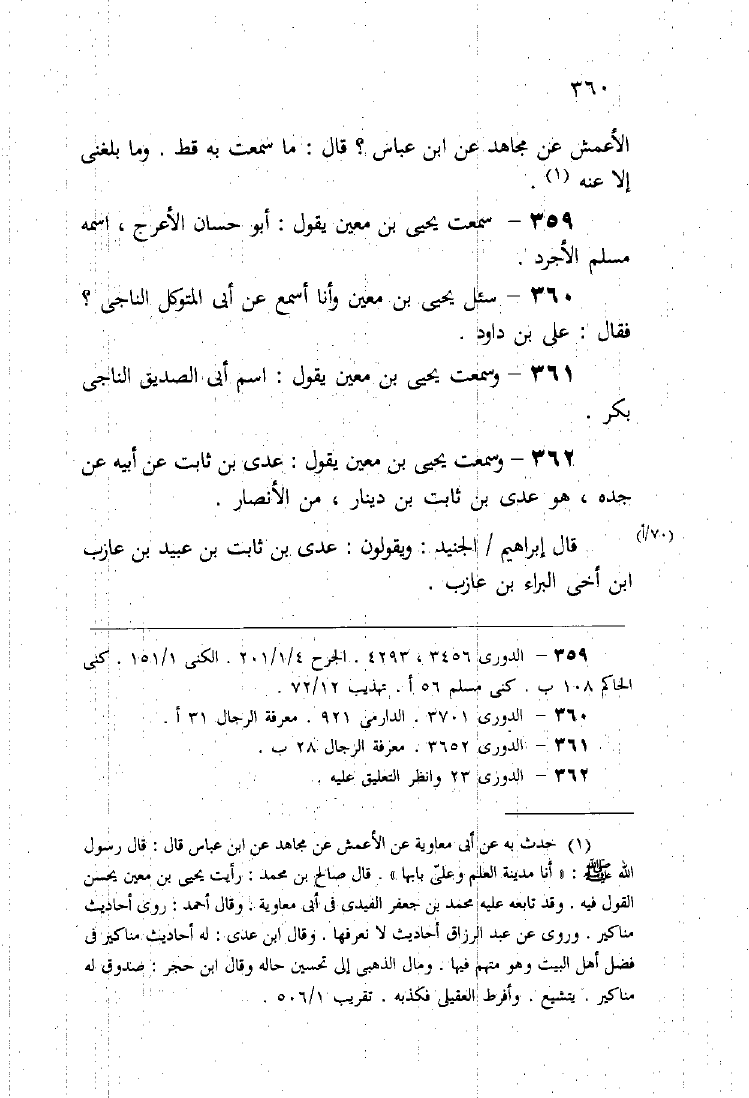 ٣٦٠
الأعمش عن مجاهد عن ابن عباس ؟ قال : ما سمعت به قط . وما بلغنى
إلا عنه (١) .
٣٥٩ – سمعت يحيى بن معين يقول : أبو حسان الأعرج ، اسمه
مسلم الأجرد .
٣٦٠ – سئل يحيى بن معين وأنا أسمع عن أبى المتوكل الناجى ؟
فقال : على بن داود .
٣٦١ – وسمعت يحيى بن معين يقول : اسم أبى الصديق الناجى
بكر .
٣٦٢ – وسمعت يحيى بن معين يقول : عدى بن ثابت عن أبيه عن
جده ، هو عدى بن ثابت بن دينار ، من الأنصار .
(٧٠/أ) قال إبراهيم / الجنيد : ويقولون : عدى بن ثابت بن عبيد بن عازب
ابن أخى البراء بن عازب .
٣٥٩ – الدورى ٣٤٥٦ ، ٤٢٩٣ . الجرح ٢٠١/١/٤ . الكنى ١٥١/١ . كنى
الحاكم ١٠٨ ب . كنى مسلم ٥٦ أ . تهذيب ٧٢/١٢ .
٣٦٠ – الدورى ٣٧٠١ . الدارمى ٩٢١ . معرفة الرجال ٣١ أ .
٣٦١ – الدورى ٣٦٥٢ . معرفة الرجال ٢٨ ب .
٣٦٢ – الدورى ٢٣ وانظر التعليق عليه .
(١) حدث به عن أبى معاوية عن الأعمش عن مجاهد عن ابن عباس قال : قال رسول
الله ﷺ : « أنا مدينة العلم وعلىّ بابها » . قال صالح بن محمد : رأيت يحيى بن معين يحسن
القول فيه . وقد تابعه عليه محمد بن جعفر الفيدى فى أبى معاوية . وقال أحمد : روى أحاديث
مناكير . وروى عن عبد الرزاق أحاديث لا نعرفها . وقال ابن عدى : له أحاديث مناكير فى
فضل أهل البيت وهو متهم فيها . ومال الذهبى إلى تحسين حاله وقال ابن حجر : صدوق له
مناكير . يتشيع . وأفرط العقيلى فكذبه . تقريب ٥٠٦/١ .